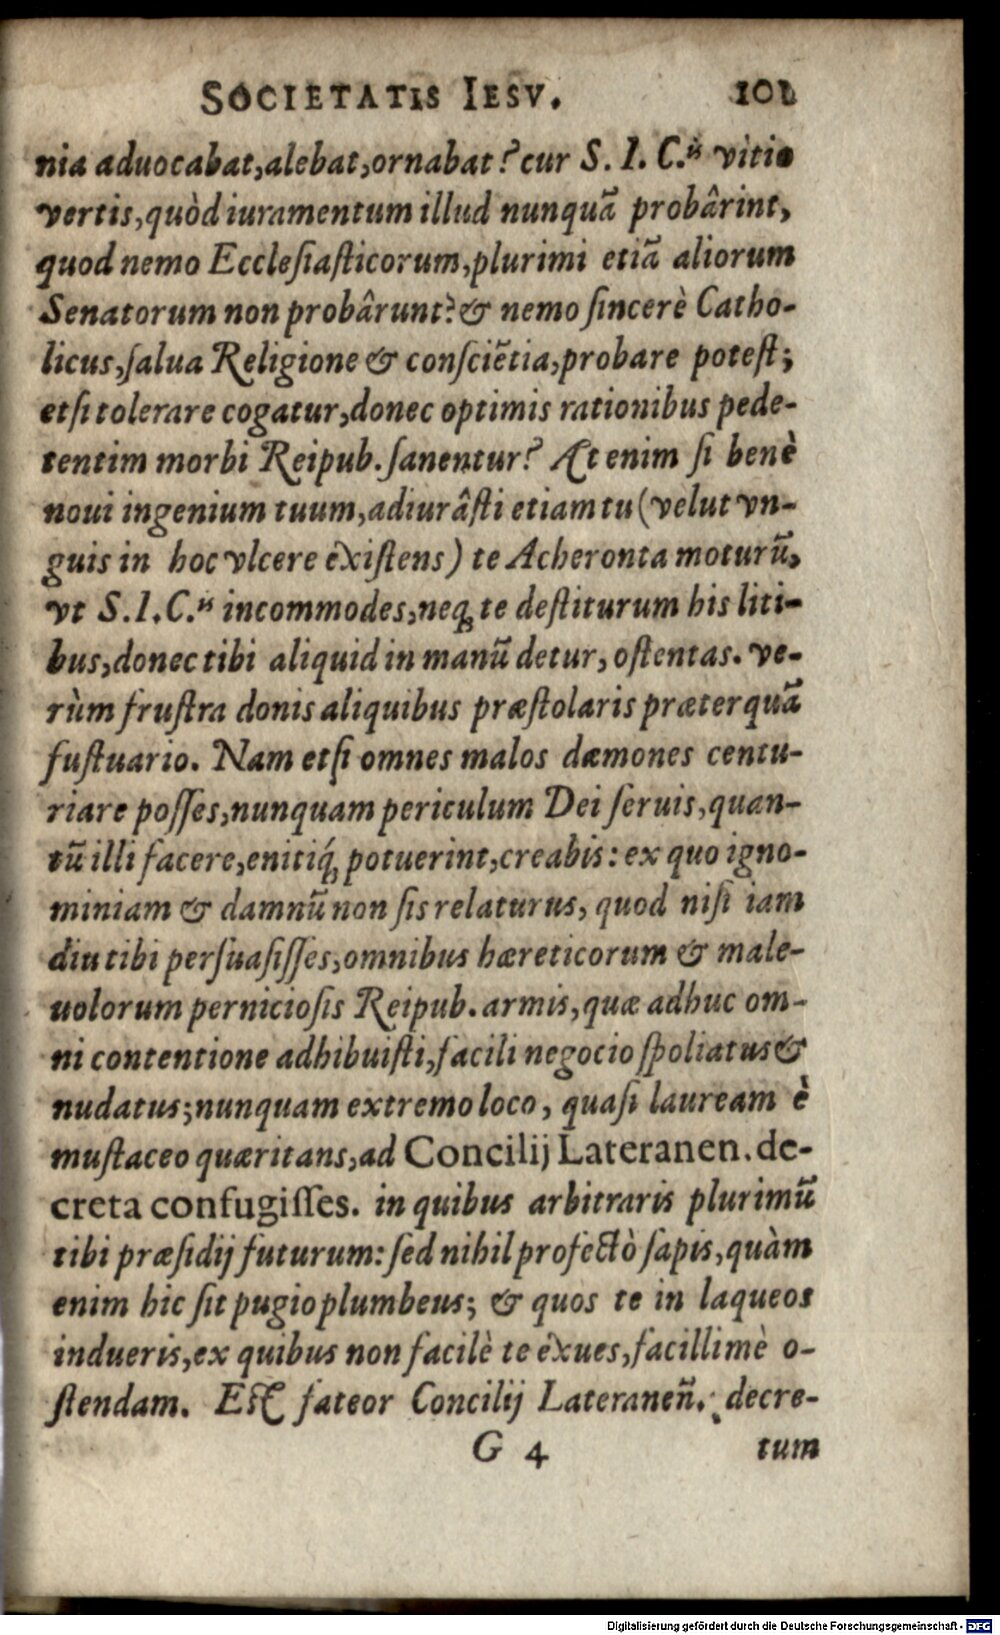 SOCIETATIS IESV. 101
nia aduocabat,alebat,ornabat? cur S. I. C.ⁿ vitio
vertis,quòd iuramentum illud nunquã probârint,
quod nemo Ecclesiasticorum,plurimi etiã aliorum
Senatorum non probârunt? & nemo sincerè Catho-
licus,salua Religione & consciẽtia,probare potest;
etsi tolerare cogatur,donec optimis rationibus pede-
tentim morbi Reipub. sanentur? At enim si benè
noui ingenium tuum,adiurâsti etiam tu (velut vn-
guis in hoc vlcere existens) te Acheronta moturũ,
vt S.I.C.ⁿ incommodes,neq; te destiturum his liti-
bus,donec tibi aliquid in manũ detur, ostentas. ve-
rùm frustra donis aliquibus præstolaris præterquã
fustuario. Nam etsi omnes malos dæmones centu-
riare posses,nunquam periculum Dei seruis,quan-
tũ illi facere,enitiq́; potuerint,creabis: ex quo igno-
miniam & damnũ non sis relaturus, quod nisi iam
diu tibi persuasisses,omnibus hæreticorum & male-
uolorum perniciosis Reipub. armis,quæ adhuc om-
ni contentione adhibuisti,facili negocio spoliatus &
nudatus; nunquam extremo loco, quasi lauream è
mustaceo quæritans,ad Concilij Lateranen. de-
creta confugisses. in quibus arbitraris plurimũ
tibi præsidij futurum: sed nihil profectò sapis,quàm
enim hic sit pugio plumbeus; & quos te in laqueos
indueris,ex quibus non facilè te exues,facillimè o-
stendam. Est fateor Concilij Lateraneñ. decre-
G 4 tum
Digitalisierung gefördert durch die Deutsche Forschungsgemeinschaft - DFG